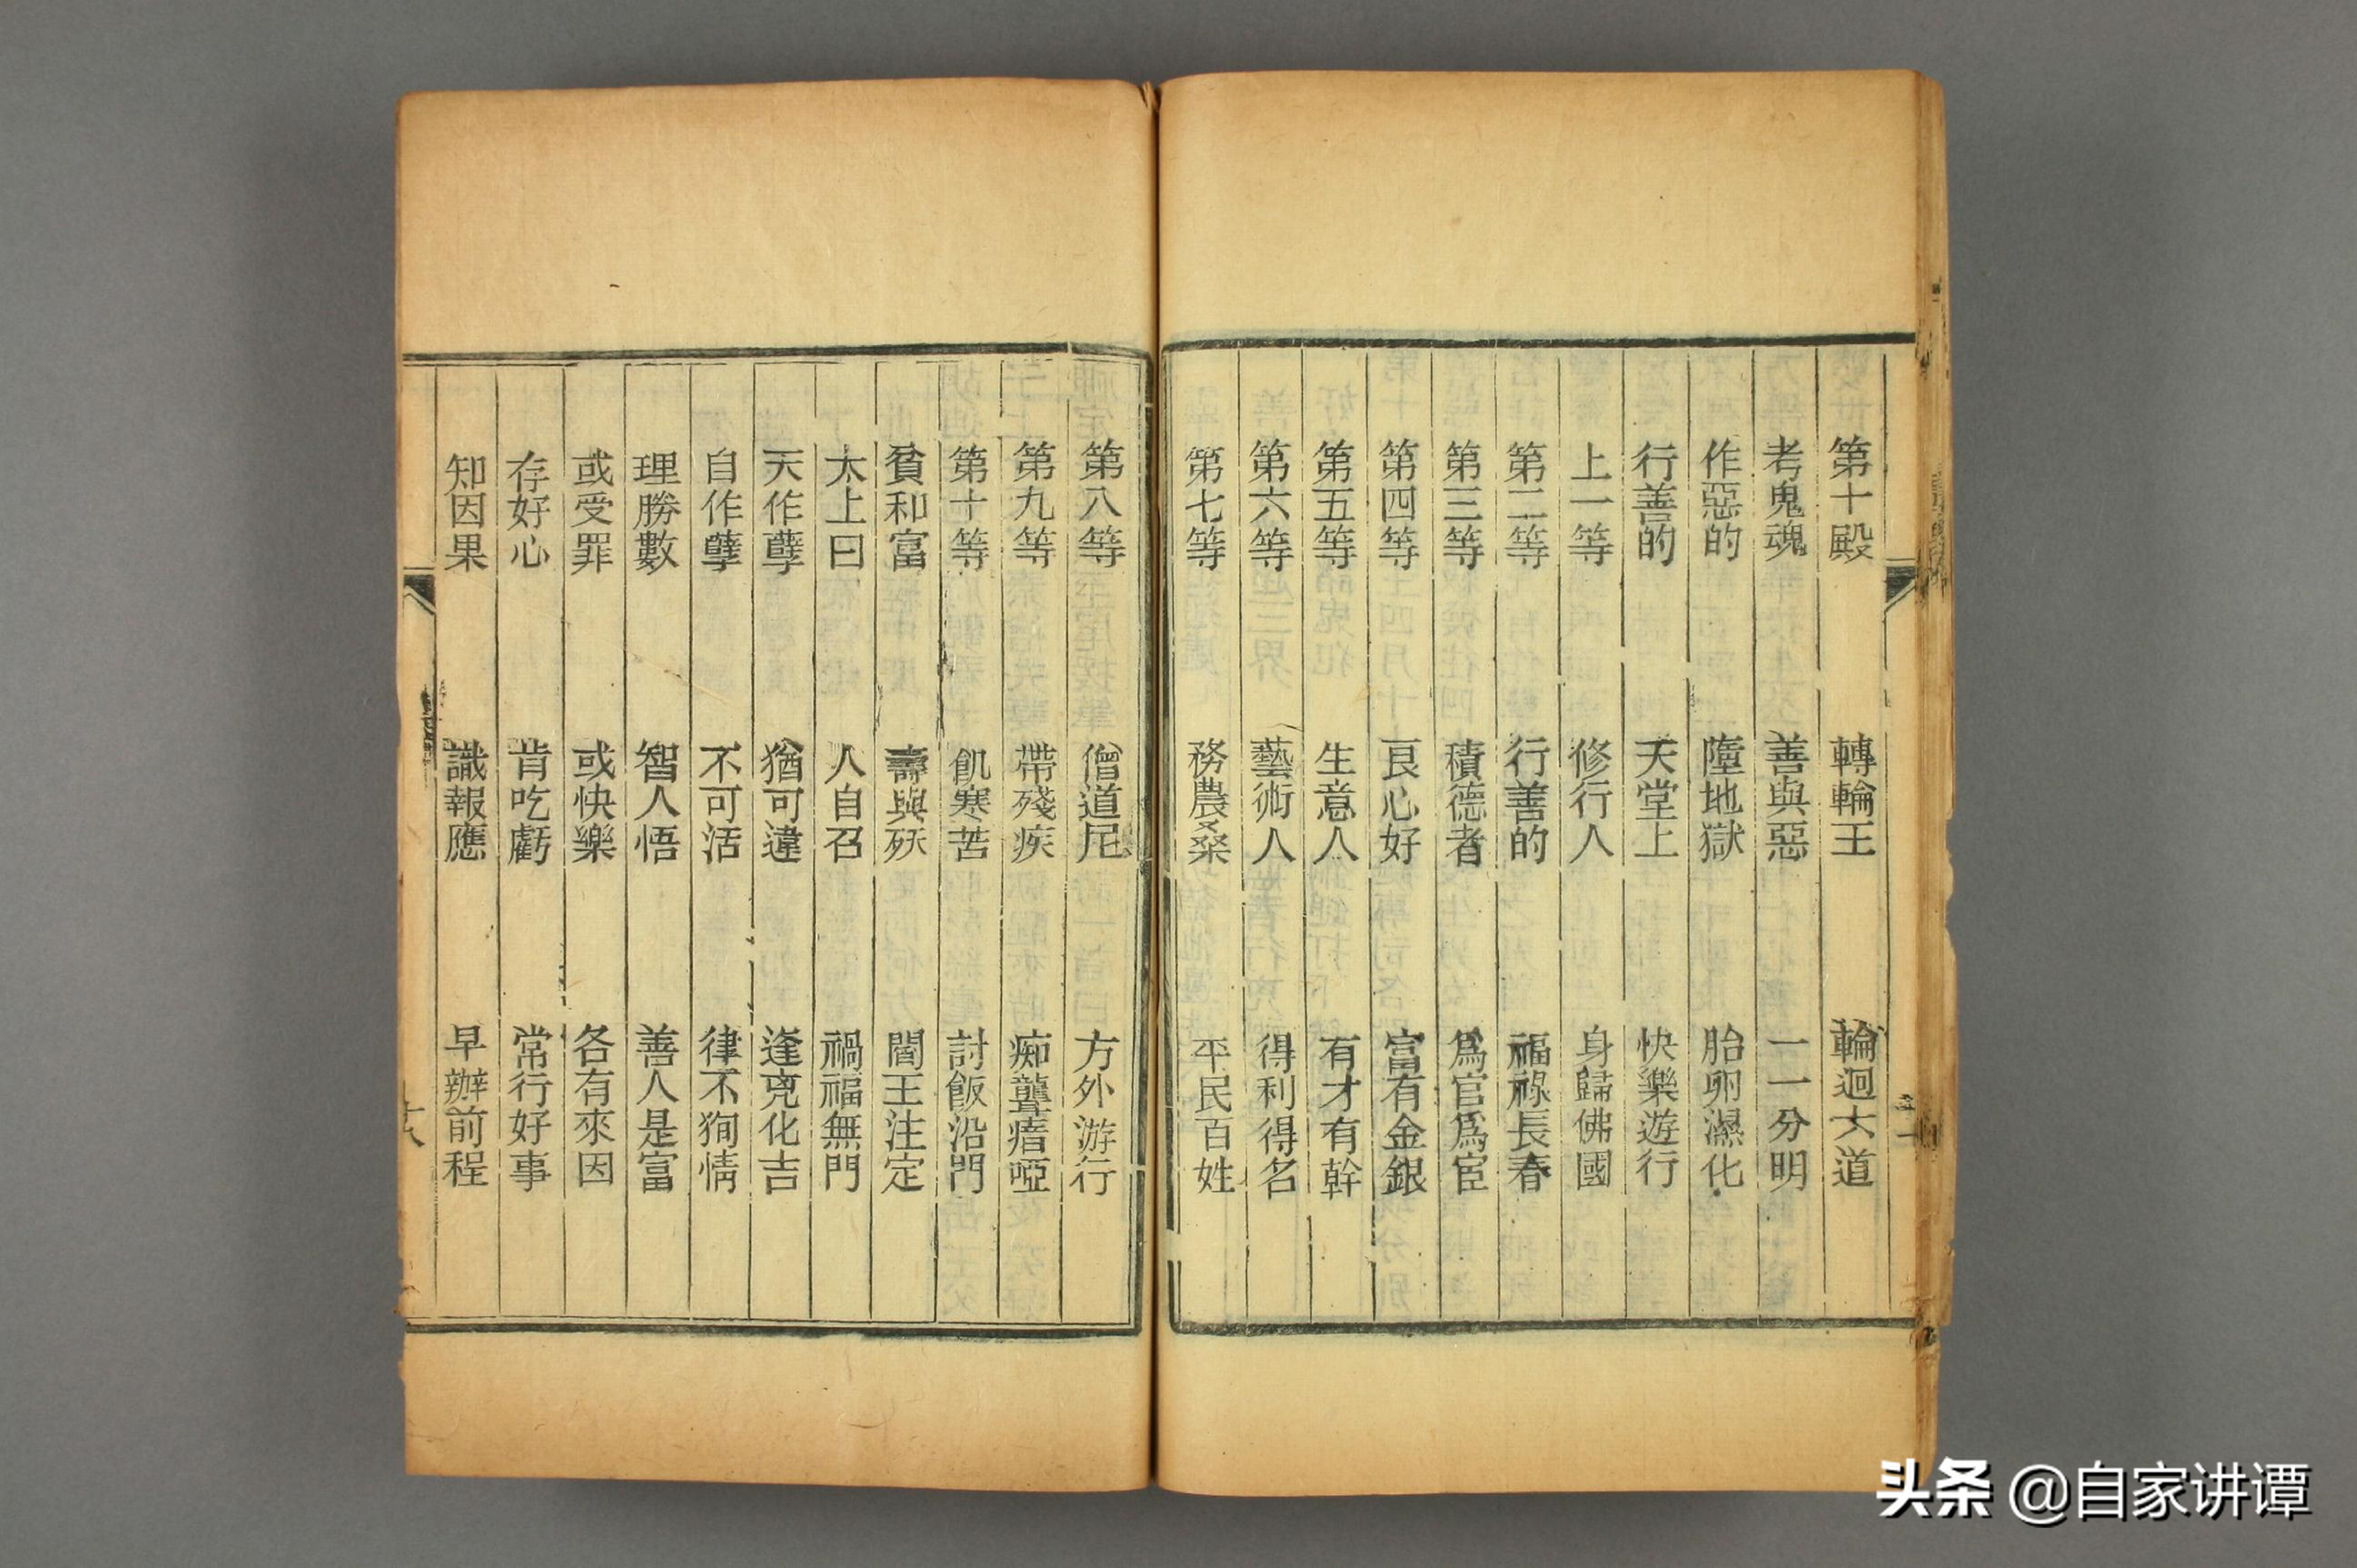 第十殿 轉輪王 輪迴大道
考鬼魂 善與惡 一一分明
作惡的 墮地獄 胎卵濕化
行善的 天堂上 快樂遊行
上一等 修行人 身歸佛國
第二等 行善的 福祿長春
第三等 積德者 爲官爲宦
第四等 良心好 富有金銀
第五等 生意人 有才有幹
第六等 藝術人 得利得名
第七等 務農桑 平民百姓
第八等 僧道尼 方外游行
第九等 帶殘疾 痴聾瘖啞
第十等 飢寒苦 討飯沿門
貧和富 壽與殀 閻王注定
太上曰 人自召 禍福無門
天作孽 猶可違 逢兇化吉
自作孽 不可活 律不狥情
理勝數 智人悟 善人是富
或受罪 或快樂 各有來因
存好心 肯吃虧 常行好事
知因果 識報應 早辦前程
头条 @自家讲谭